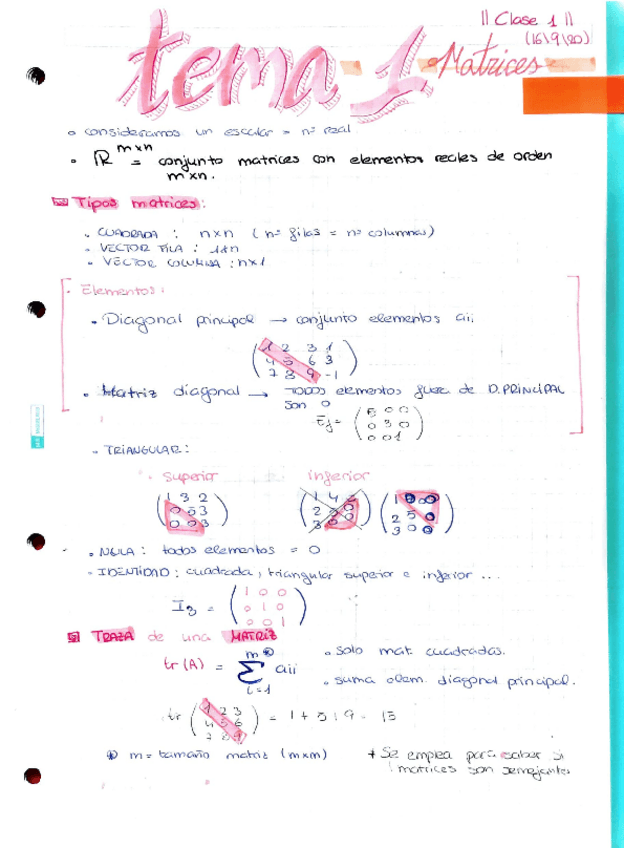 || Clase 1 ||
(16\9\20)
tema - 1 Matrices
consideramos un escalar = nº real
ℝ^mxn = conjunto matrices con elementos reales de orden
mxn.
Tipos matrices:
CUADRADA : nxn (nº filas = nº columnas)
VECTOR FILA : 1xn
VECTOR COLUMNA : nx1
Elementos:
Diagonal principal → conjunto elementos aii
1 2 3 1
4 5 6 3
7 8 9 -1
Matriz diagonal → TODOS elementos fuera de D.PRINCIPAL
son 0
Ej= 0 0
0 3 0
0 0 1
TRIANGULAR:
Superior inferior
1 3 2
0 5 3
0 0 3
NULA : todos elementos = 0
IDENTIDAD : cuadrada, triangular superior e inferior ...
I3 = 1 0 0
0 1 0
0 0 1
TRAZA de una MATRIZ
tr (A) = m Σ i=1 aii
Solo mat. cuadradas.
suma elem. diagonal principal.
tr 1 2 3
4 5 6
7 8 9
= 1 + 5 + 9 = 15
m = tamaño matriz (mxm)
+ Se emplea para saber si
matrices son semejantes